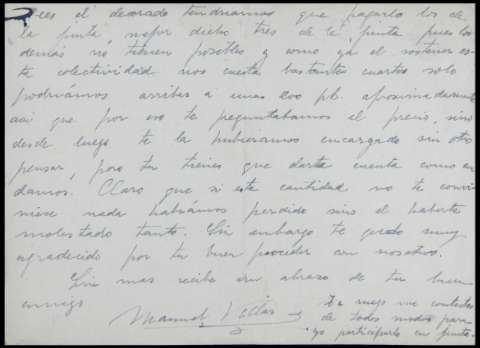 es el decorado tendriamos que pagarlo los de
la junta, mejor dicho tres de la junta pues los
demás no tienen posibles y como ya el sostener es-
ta colectividad nos cuesta bastantes cuartos solo
podriamos arribar a unas 200 pts. aproximadamente
asi que por eso te preguntabamos el precio, sino
desde luego te la hubieramos encargado sin otro
pensar, pero tu tienes que darte cuenta como an
damos. Claro que si esta cantidad no te convi
niese nada habiamos perdido sino el haberte
molestado tanto. Sin embargo te quedo muy
agradecido por tu buen proceder con nosotros.
Sin mas recibe un abrazo de tu buen
amigo
Manuel
te ruego me contestes
de todos modos para
yo participarlo en junta.